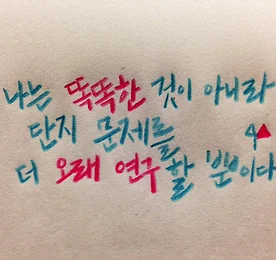 나는 똑똑한 것이 아니라
단지 문제를
더 오래 연구할 '뿐'이다